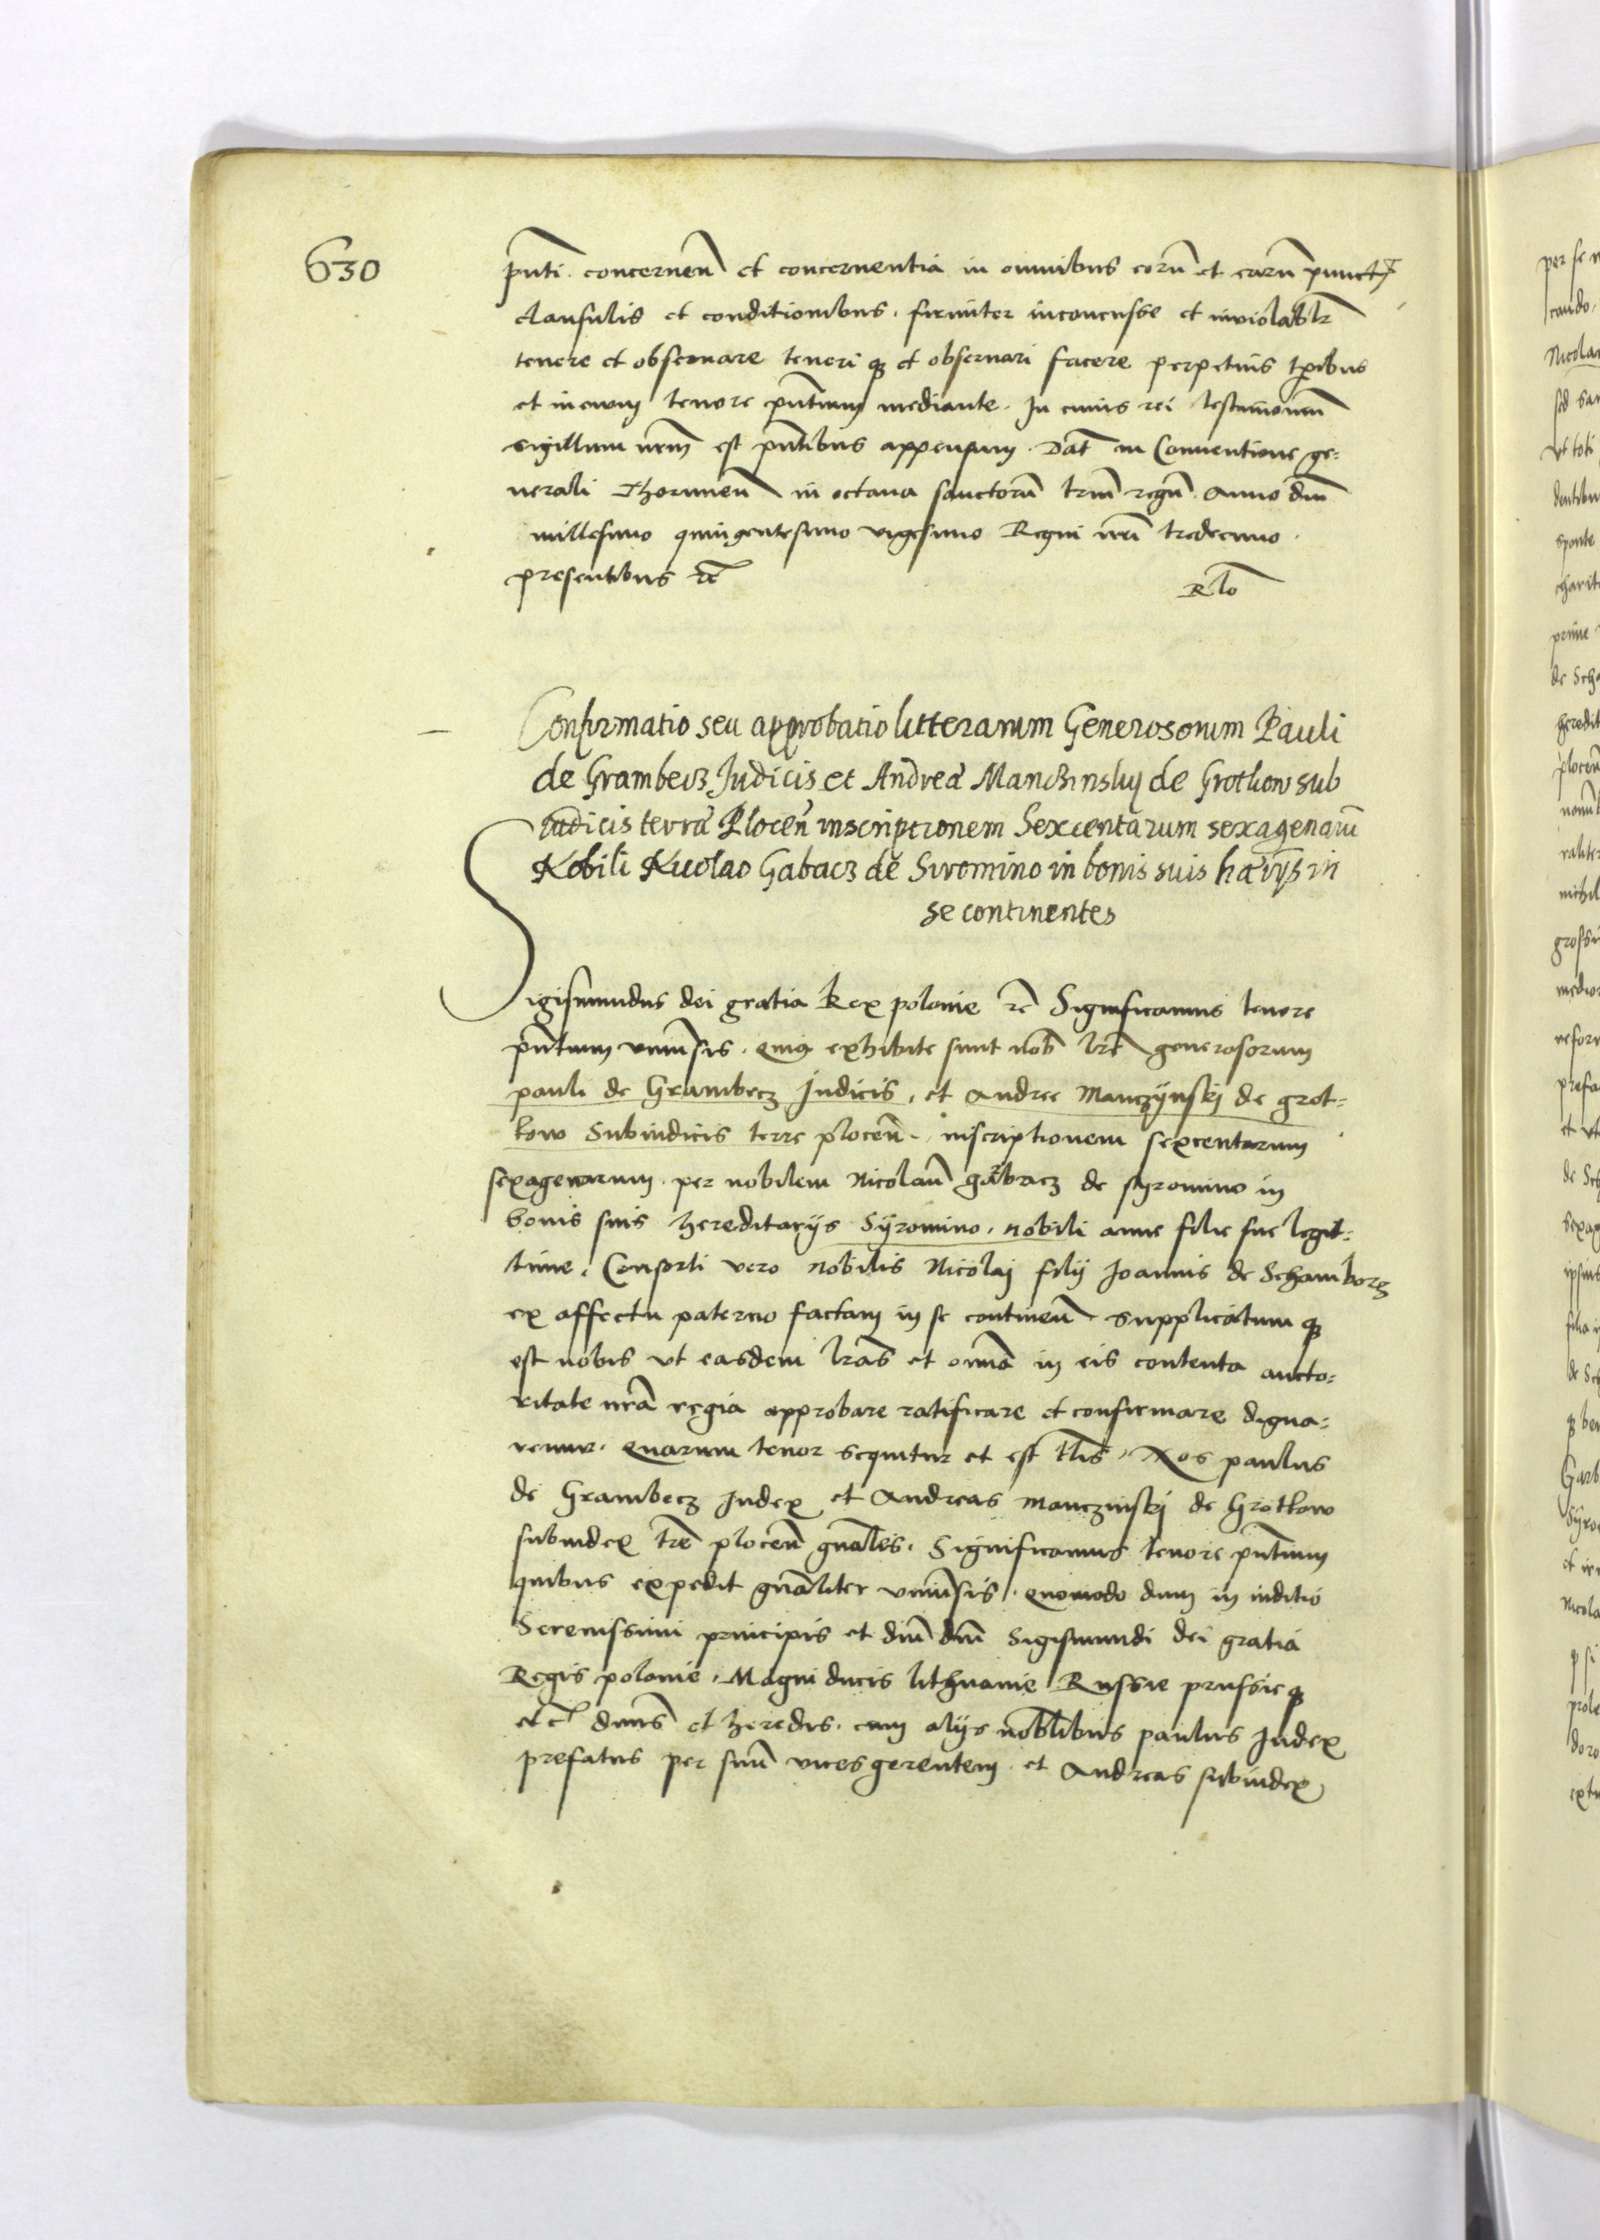 630
pñti concerneñ et concernentia in omnibus eorũ et earũ punctꝭ
clausulis et conditionibus . firmiter inconcusse et inviolabłr
tenere et observare teneri ꝙ et observari facere perpetuis tꝑibus
et in evum tenore pñtium mediante . In cuius rei testimoniũ
sigillum nr̃m est pñtibus appensum . Dat̃ in Conventione ge=
nerali Thorunieñ in octava sanctorũ triũ regũ . Anno dñi
millesimo quingentesimo vigesimo Regni nr̃i tredecimo .
presentibus ꝛc̃
Rło
Confirmatio seu approbatio litterarum Generosorum Pauli
de Grambecz Judicis et Andreæ Manczinskij de Grothow sub
iudicis terræ Ploceñ inscriptionem Sexcentarum sexagenarũ
Nobili Nicolao Gabacz de Siromino in bonis suis hærijs in
se continentes
Sigismundus dei gratia Rex polonie ꝛc̃ Significamus tenore
pñtium uniṽsis . quia exhibite sunt nob̃ lr̃e generosorum
pauli de Grambecz Judicis , et Andree Manczÿnskj de grot=
kow Subiudicis terre ploceñ . inscriptionem sexcentarum
sexagenarum . per nobilem Nicolaũ garbacz de syromino in
bonis suis hereditarijs Sÿromino . nobili anne filie sue legit=
time . Consorti vero nobilis Nicolaj filij Joannis de Schamborz
ex affectu paterno factam in se contineñ . supplicatum ꝙ
est nobis ut easdem lr̃as et om̃ia in eis contenta aucto=
ritate nr̃a regia approbare ratificare et confirmare digna=
remur . Quarum tenor sequitur et est tłis . Nos paulus
de Grambecz Judex et Andreas Manczinskj de Grotkow
subiudex tr̃e ploceñ gñałes . Significamus tenore pñtium
quibus expedit gñaliter uniṽsis . quomodo dum in iuditio
Serenissimi principis et dñi dñi Sigismundi dei gratia
Regis polonie . Magni ducis lithuanie Russie prussie ꝙ
etc̃ dñi et heredis . cum alijs nobłibus paulus Judex
prefatus per suũ vices gerentem . et Andreas subiudex